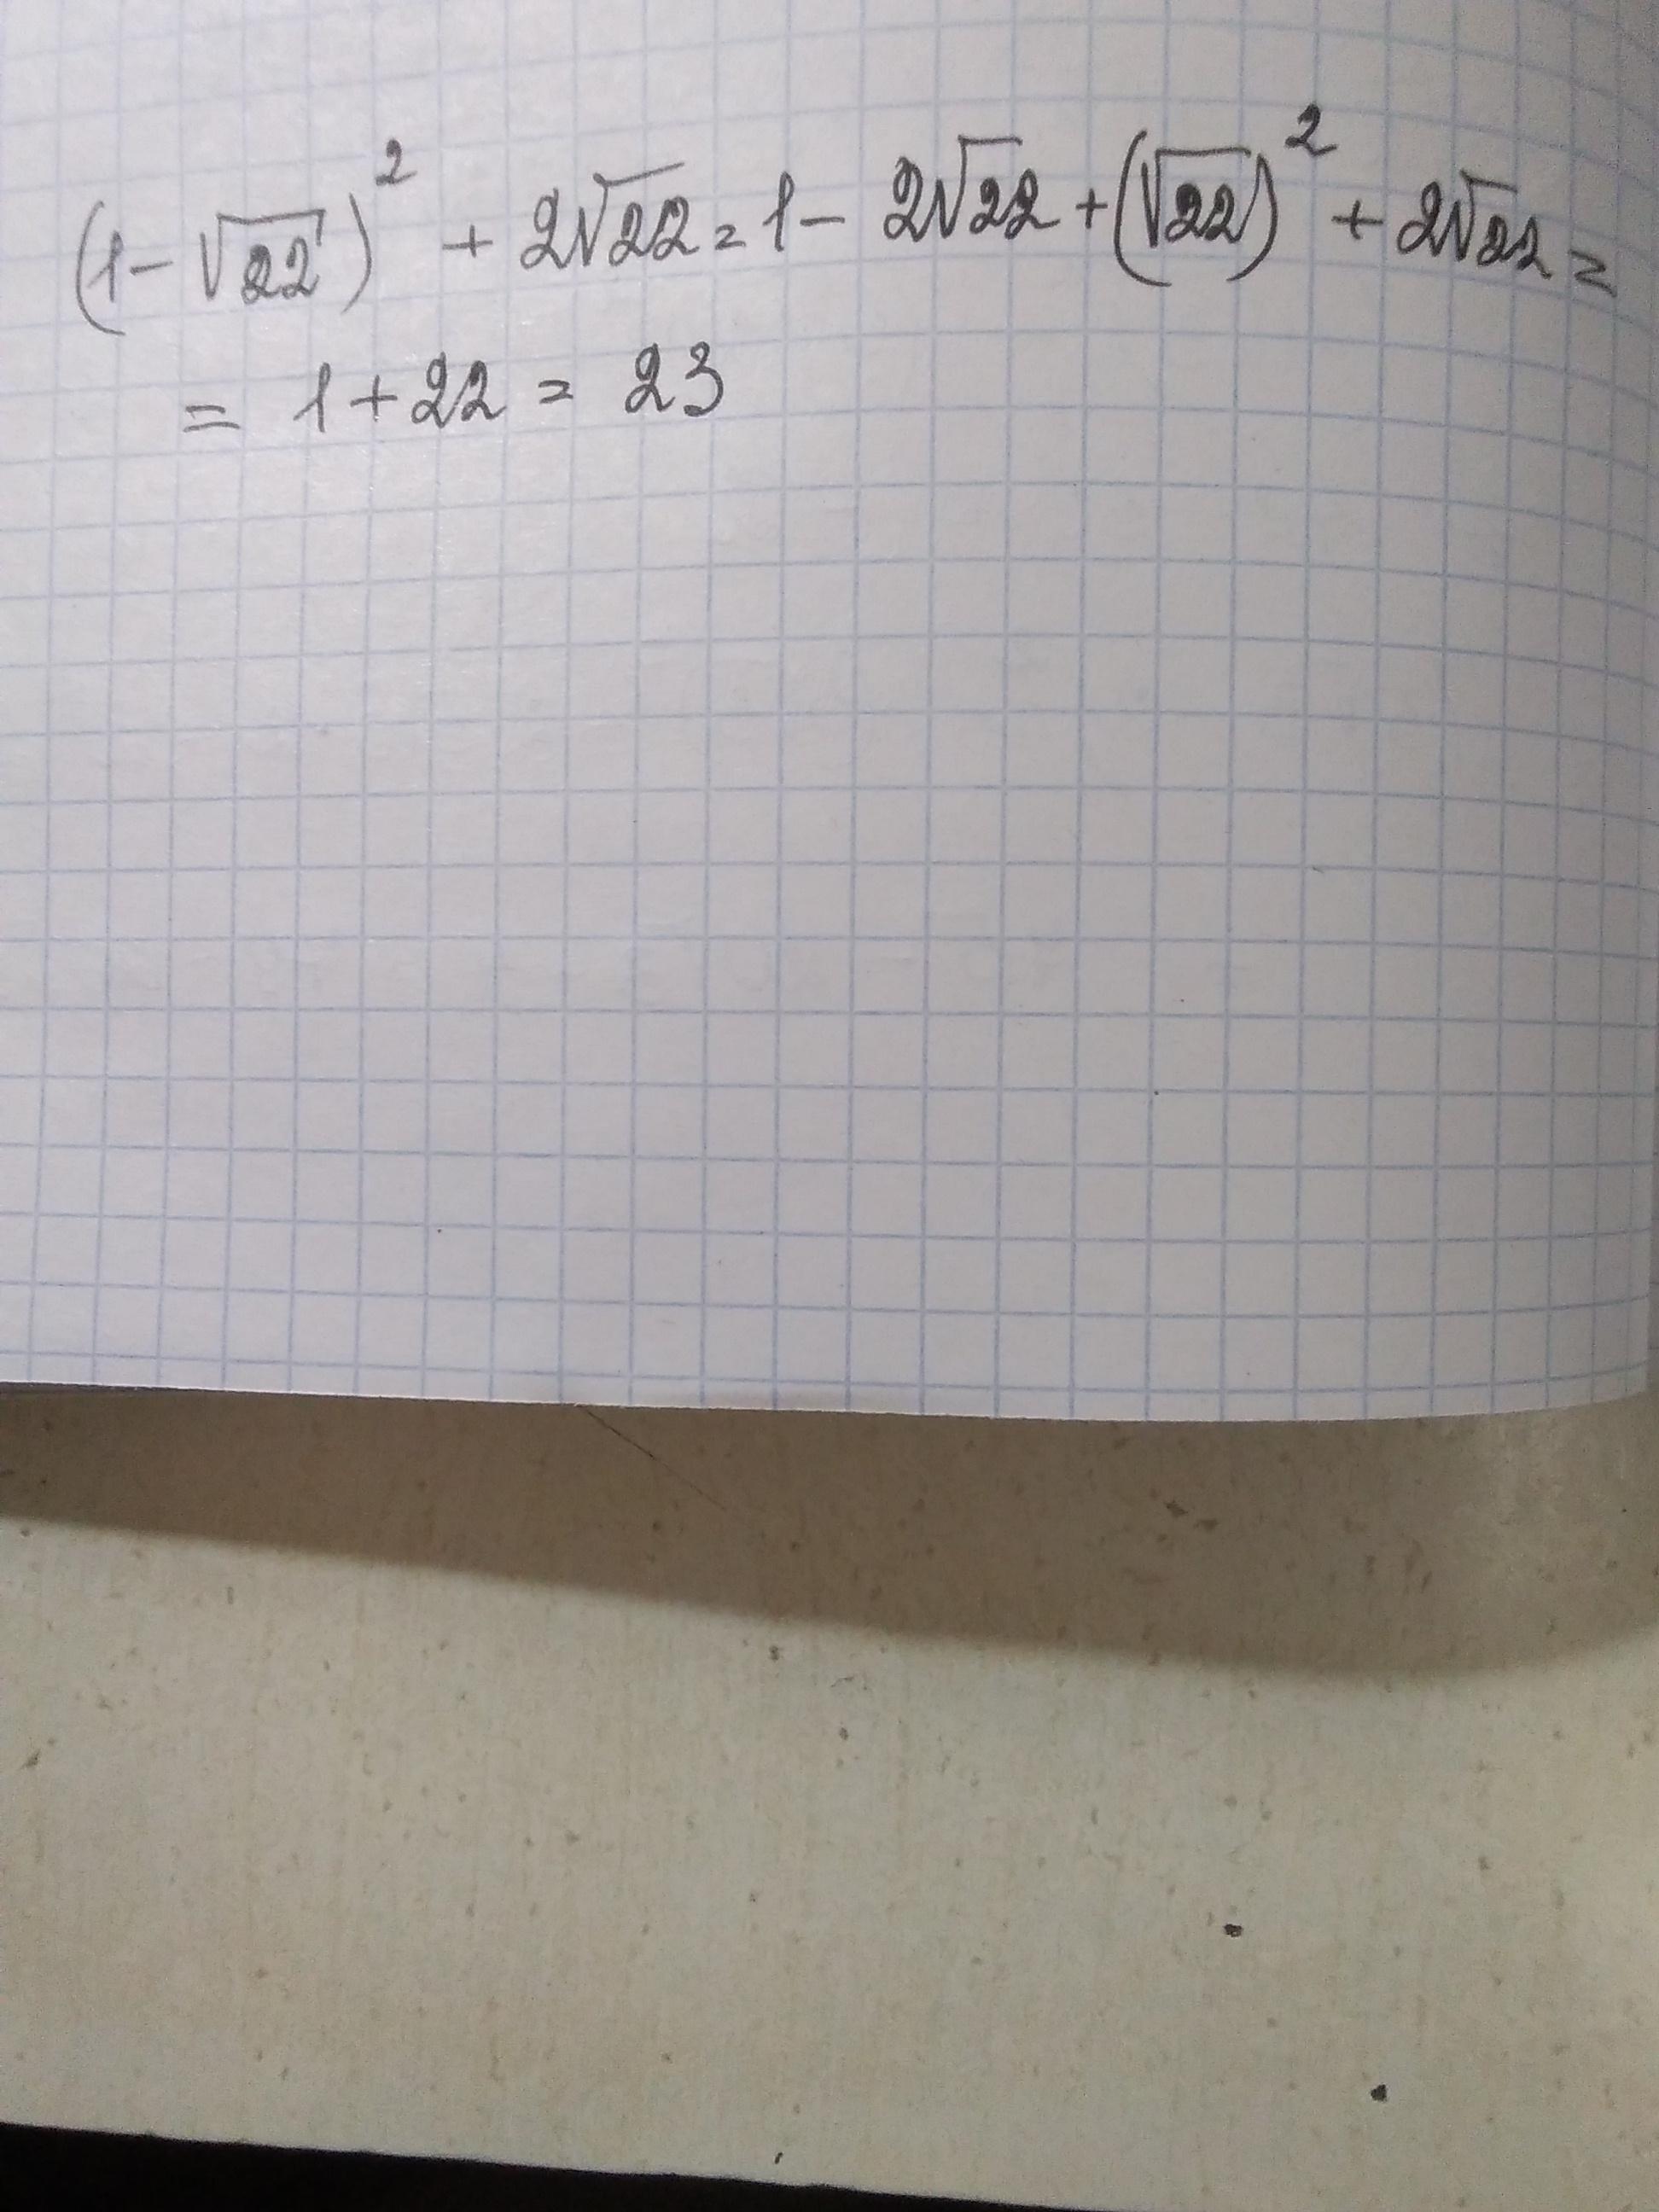 (1-√22)² + 2√22 = 1 - 2√22 + (√22)² + 2√22 =
= 1 + 22 = 23